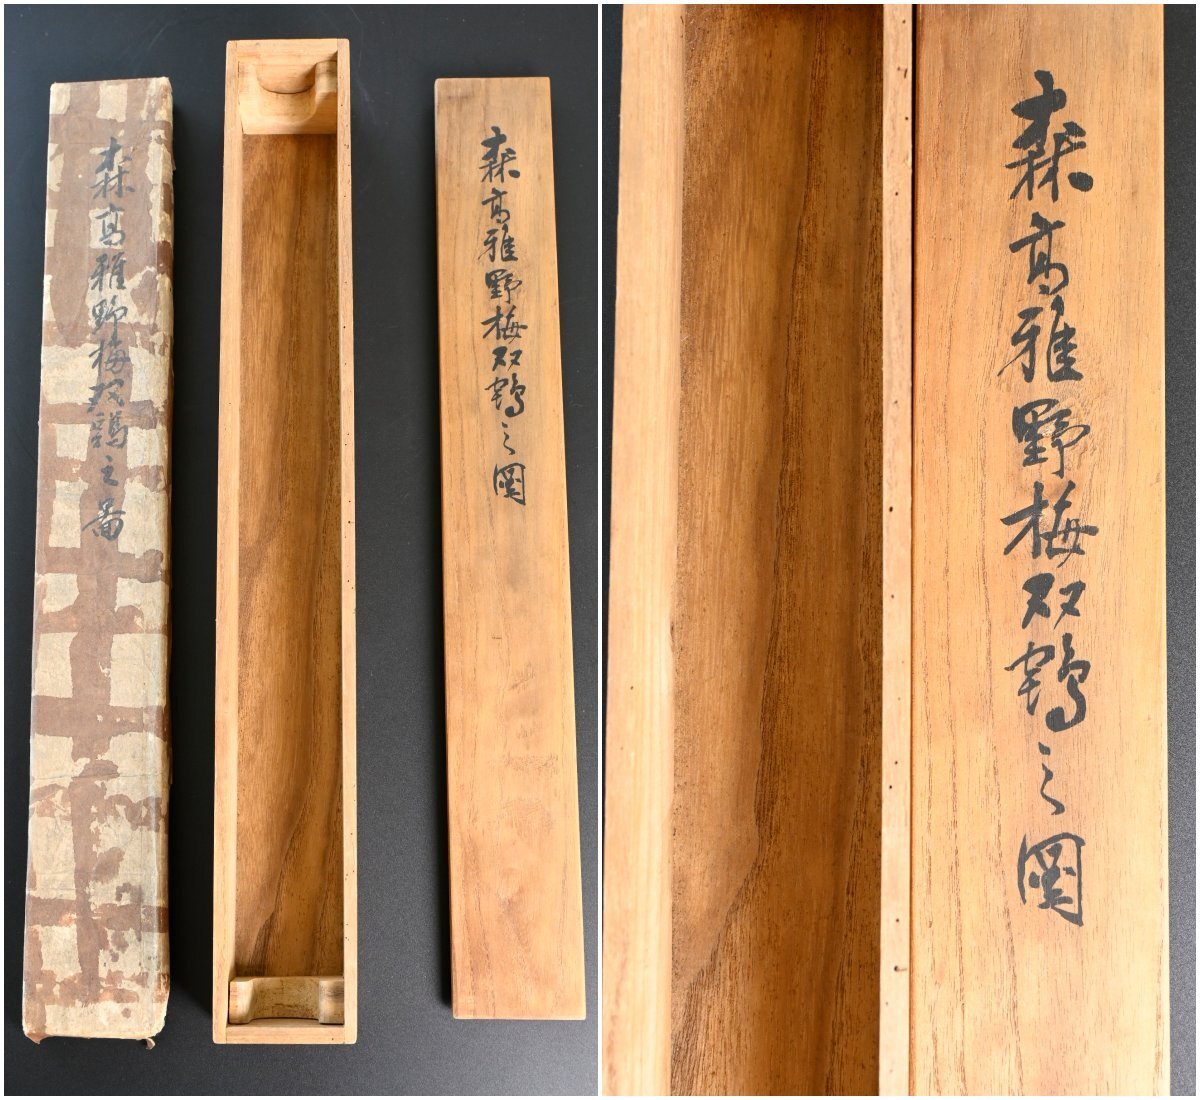 森高雅野梅双鶴之図
森高雅野梅双鶴之図
森高雅野梅双鶴之図